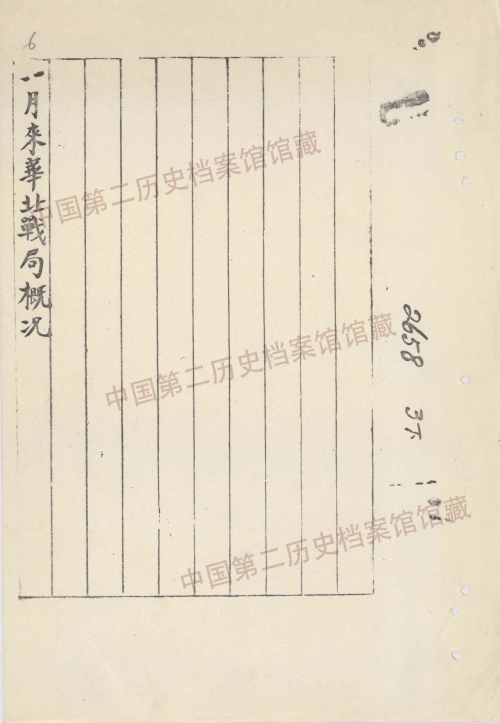 6
一月來華北戰局概况
2658 3T
中国第二历史档案馆馆藏
中国第二历史档案馆馆藏
中国第二历史档案馆馆藏